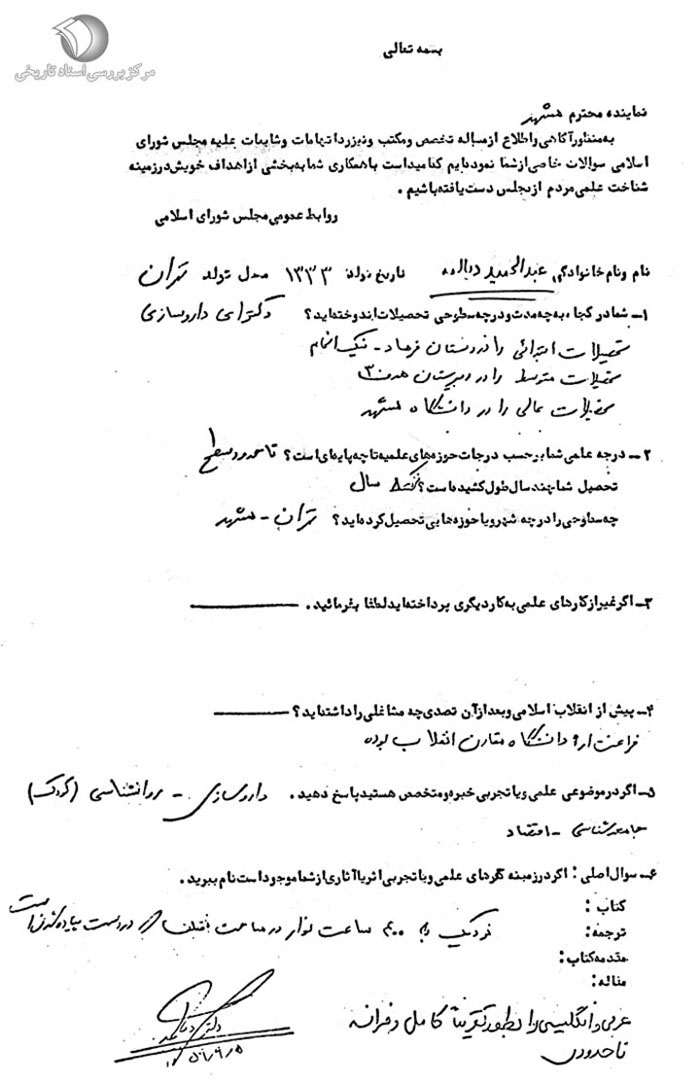 مرکز بررسی اسناد تاریخی
بسمه تعالی
نماینده محترم مشهد
به منظور آگاهی و اطلاع از مساله تخصص و مکتب و نیز رد اتهامات و شایعات علیه مجلس شورای
اسلامی سوالات خاصی از شما نموده‌ایم که امید است با همکاری شما به بخشی از اهداف خویش در زمینه
شناخت علمی مردم از مجلس دست یافته باشیم .
روابط عمومی مجلس شورای اسلامی
نام و نام خانوادگی عبدالحمید دیالمه تاریخ تولد ۱۳۳۳ محل تولد تهران
۱- شما در کجا، به چه مدت و در چه سطوحی تحصیلات اندوخته‌اید؟ دکترای داروسازی
تحصیلات ابتدائی را در دبستان فرهاد - نیک انجام
تحصیلات متوسط را در دبیرستان هدف ۳
تحصیلات عالی را در دانشگاه مشهد
۲- درجه علمی شما بر حسب درجات حوزه‌های علمیه تا چه پایه‌ای است؟ تا حدود سطح ۱
تحصیل شما چند سال طول کشیده است؟ سال
چه سطوحی را در چه شهر و یا حوزه‌هایی تحصیل کرده‌اید؟ تهران - مشهد
۳- اگر غیر از کارهای علمی به کار دیگری پرداخته‌اید لطفا بفرمائید .
۴- پیش از انقلاب اسلامی و بعد از آن تصدی چه مشاغلی را داشته‌اید؟
فراغت از دانشگاه مقارن انقلاب بوده
۵- اگر در موضوعی علمی و یا تجربی خبره و متخصص هستید پاسخ دهید . داروسازی - روانشناسی (کودک)
جامعه شناسی - اقتصاد
۶- سوال اصلی : اگر در زمینه کارهای علمی و یا تجربی اثر یا آثاری از شما موجود است نام ببرید .
کتاب :
ترجمه: نزدیک به ۴۰۰ ساعت نوار در مباحث در دست پیاده شدن است
مقدمه کتاب :
مقاله:
عربی و انگلیسی را بطور تقریبا کامل و فرانسه
تا حدودی
دکتر دیالمه